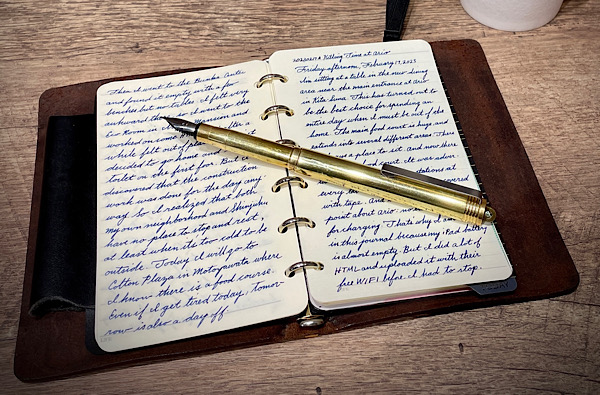 Then I went to the Bunka Center
and found it empty with a few
benches but no tables. I felt very
awkward
Room in
worked on
while felt out of
decided to go home and
toilet on the first floor. But I
discovered that the construction
work was done for the day any
way so I realized that both
my own neighborhood and Shinjuku
have no place to stop and rest,
at least when its too cold to be
outside. Today I will go to
Colton Plaza in Motoyawata where
I know there is a food course.
Even if I get tired today, tomor-
row is also a day off.
Killing Time at Ario
Friday afternoon, February 17, 2023
Am sitting at a table in the main dining
area near the main entrance at Ario
in Kita-Suna. This has turned out to
be the best choice for spending an
entire day when I must be out of the
home. The main food court is huge and
extends into several different areas. There
a place to sit and now there
court. It was adver-
stations at
every
with tape. And
point about Ario: no
for charging. That's why I am
in this journal because my iPad battery
is almost empty. But I did a lot of
HTML and uploaded it with their
free WIFI before I had to stop.